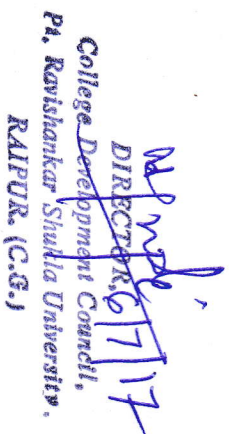 6/7/17
DIRECTOR,
College Development Council,
Pt. Ravishankar Shukla University,
RAIPUR. (C.G.)